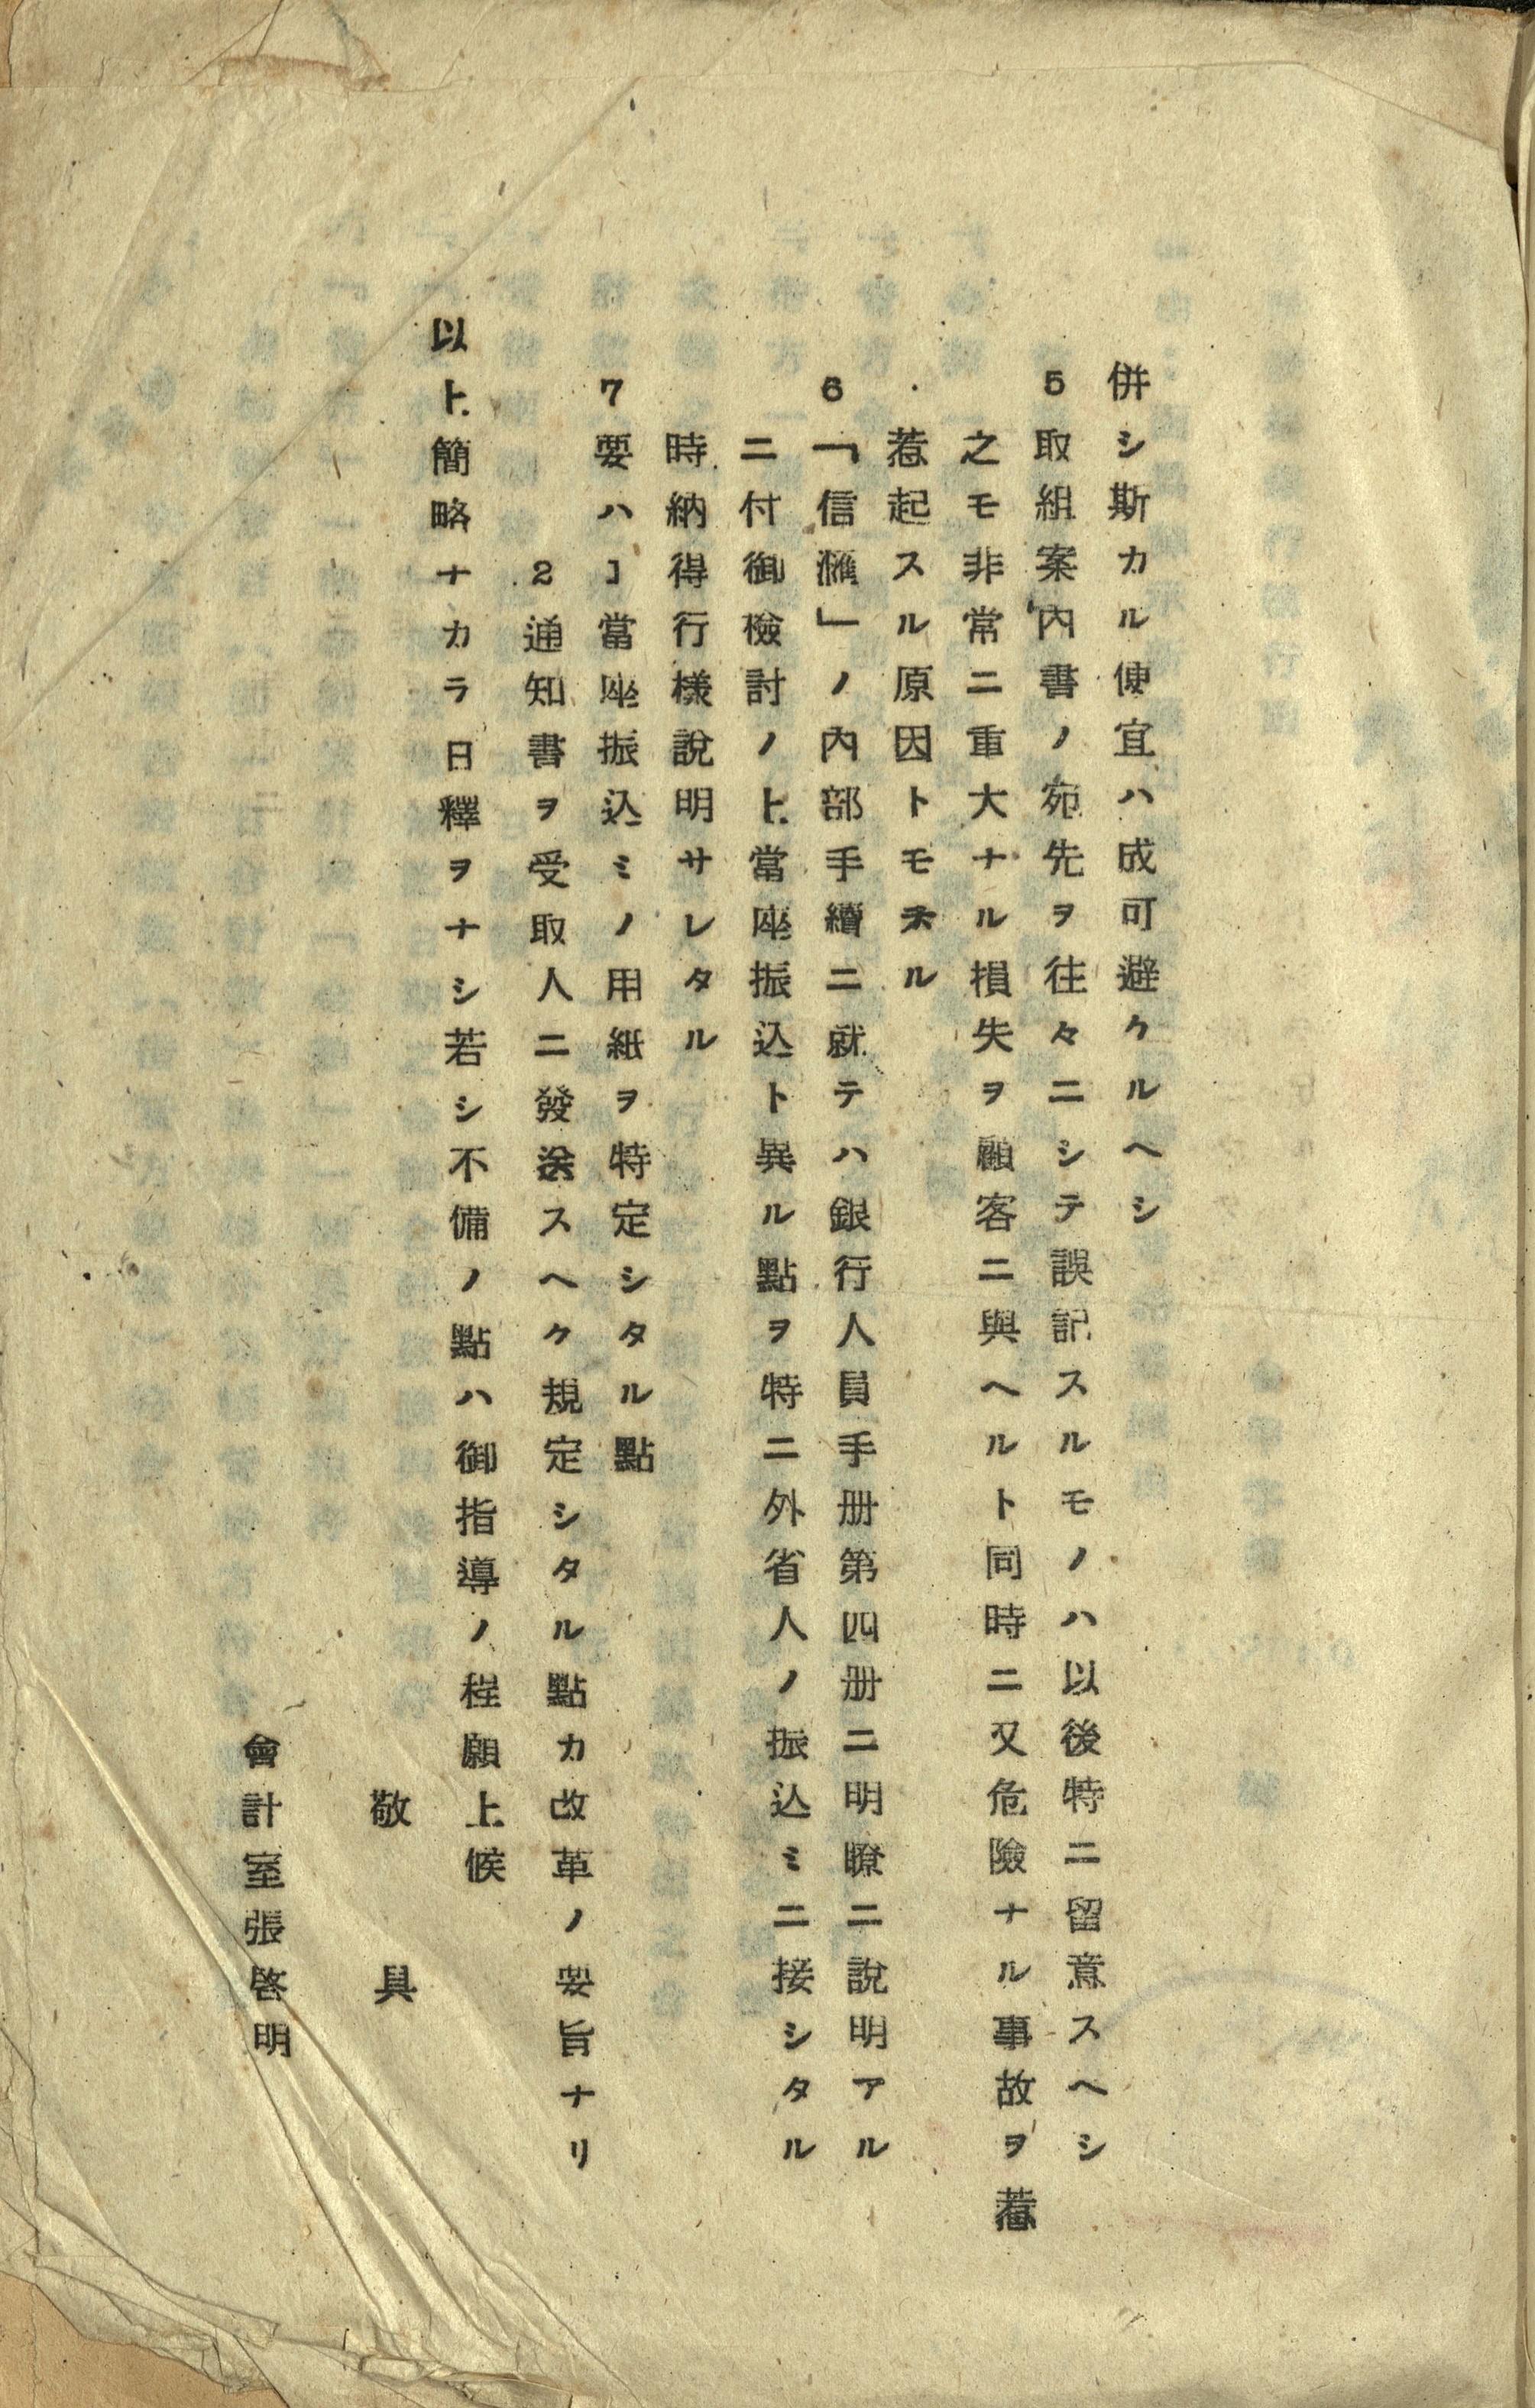 併シ斯カル便宜ハ成可避クルヘシ
5取組案內書ノ宛先ヲ往々ニシテ誤記スルモノハ以後特ニ留意スヘシ
之モ非常ニ重大ナル損失ヲ顧客ニ與ヘルト同時ニ又危險ナル事故ヲ惹
惹起スル原因トモナル
6「信匯」ノ內部手續ニ就テハ銀行人員手册第四册ニ明瞭ニ說明アル
ニ付御檢討ノ上當座振込ト異ル點ヲ特ニ外省人ノ振込ミニ接シタル
時納得行樣說明サレタル
7要ハ1當座振込ミノ用紙ヲ特定シタル點
2通知書ヲ受取人ニ發送スヘク規定シタル點カ改革ノ要旨ナリ
以上簡略ナカラ日釋ヲナシ若シ不備ノ點ハ御指導ノ程願上候
敬具
會計室張啓明